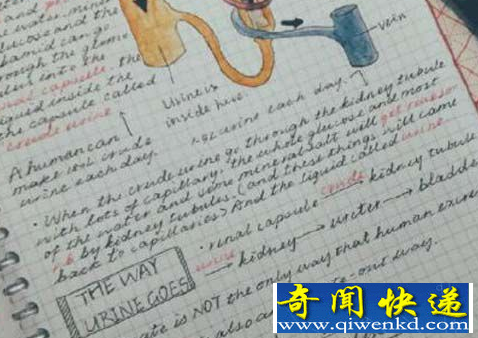 and
water miner
glucose and the
bamid can go
rough the glome
ulus into the
renal capsule, the
liquid inside the
the capsule called
crude urine
Urine is
inside here
vein
A human can
make 150L crude
urine each day.
urine each day.
· When the crude urine go through the kidney tubule
with lots of capillary, the whole glucose and most
of the water and some mineral salt will get reabso
by kidney tubules. (and these things will came
back to capillaries) And the liquid called urine.
· renal capsule crude kidney tubule
urine → kidney → ureter → bladde
THE WAY
URINE GOES
is NOT the only way that human
also
out way.
奇闻快递
www.qiwenkd.com